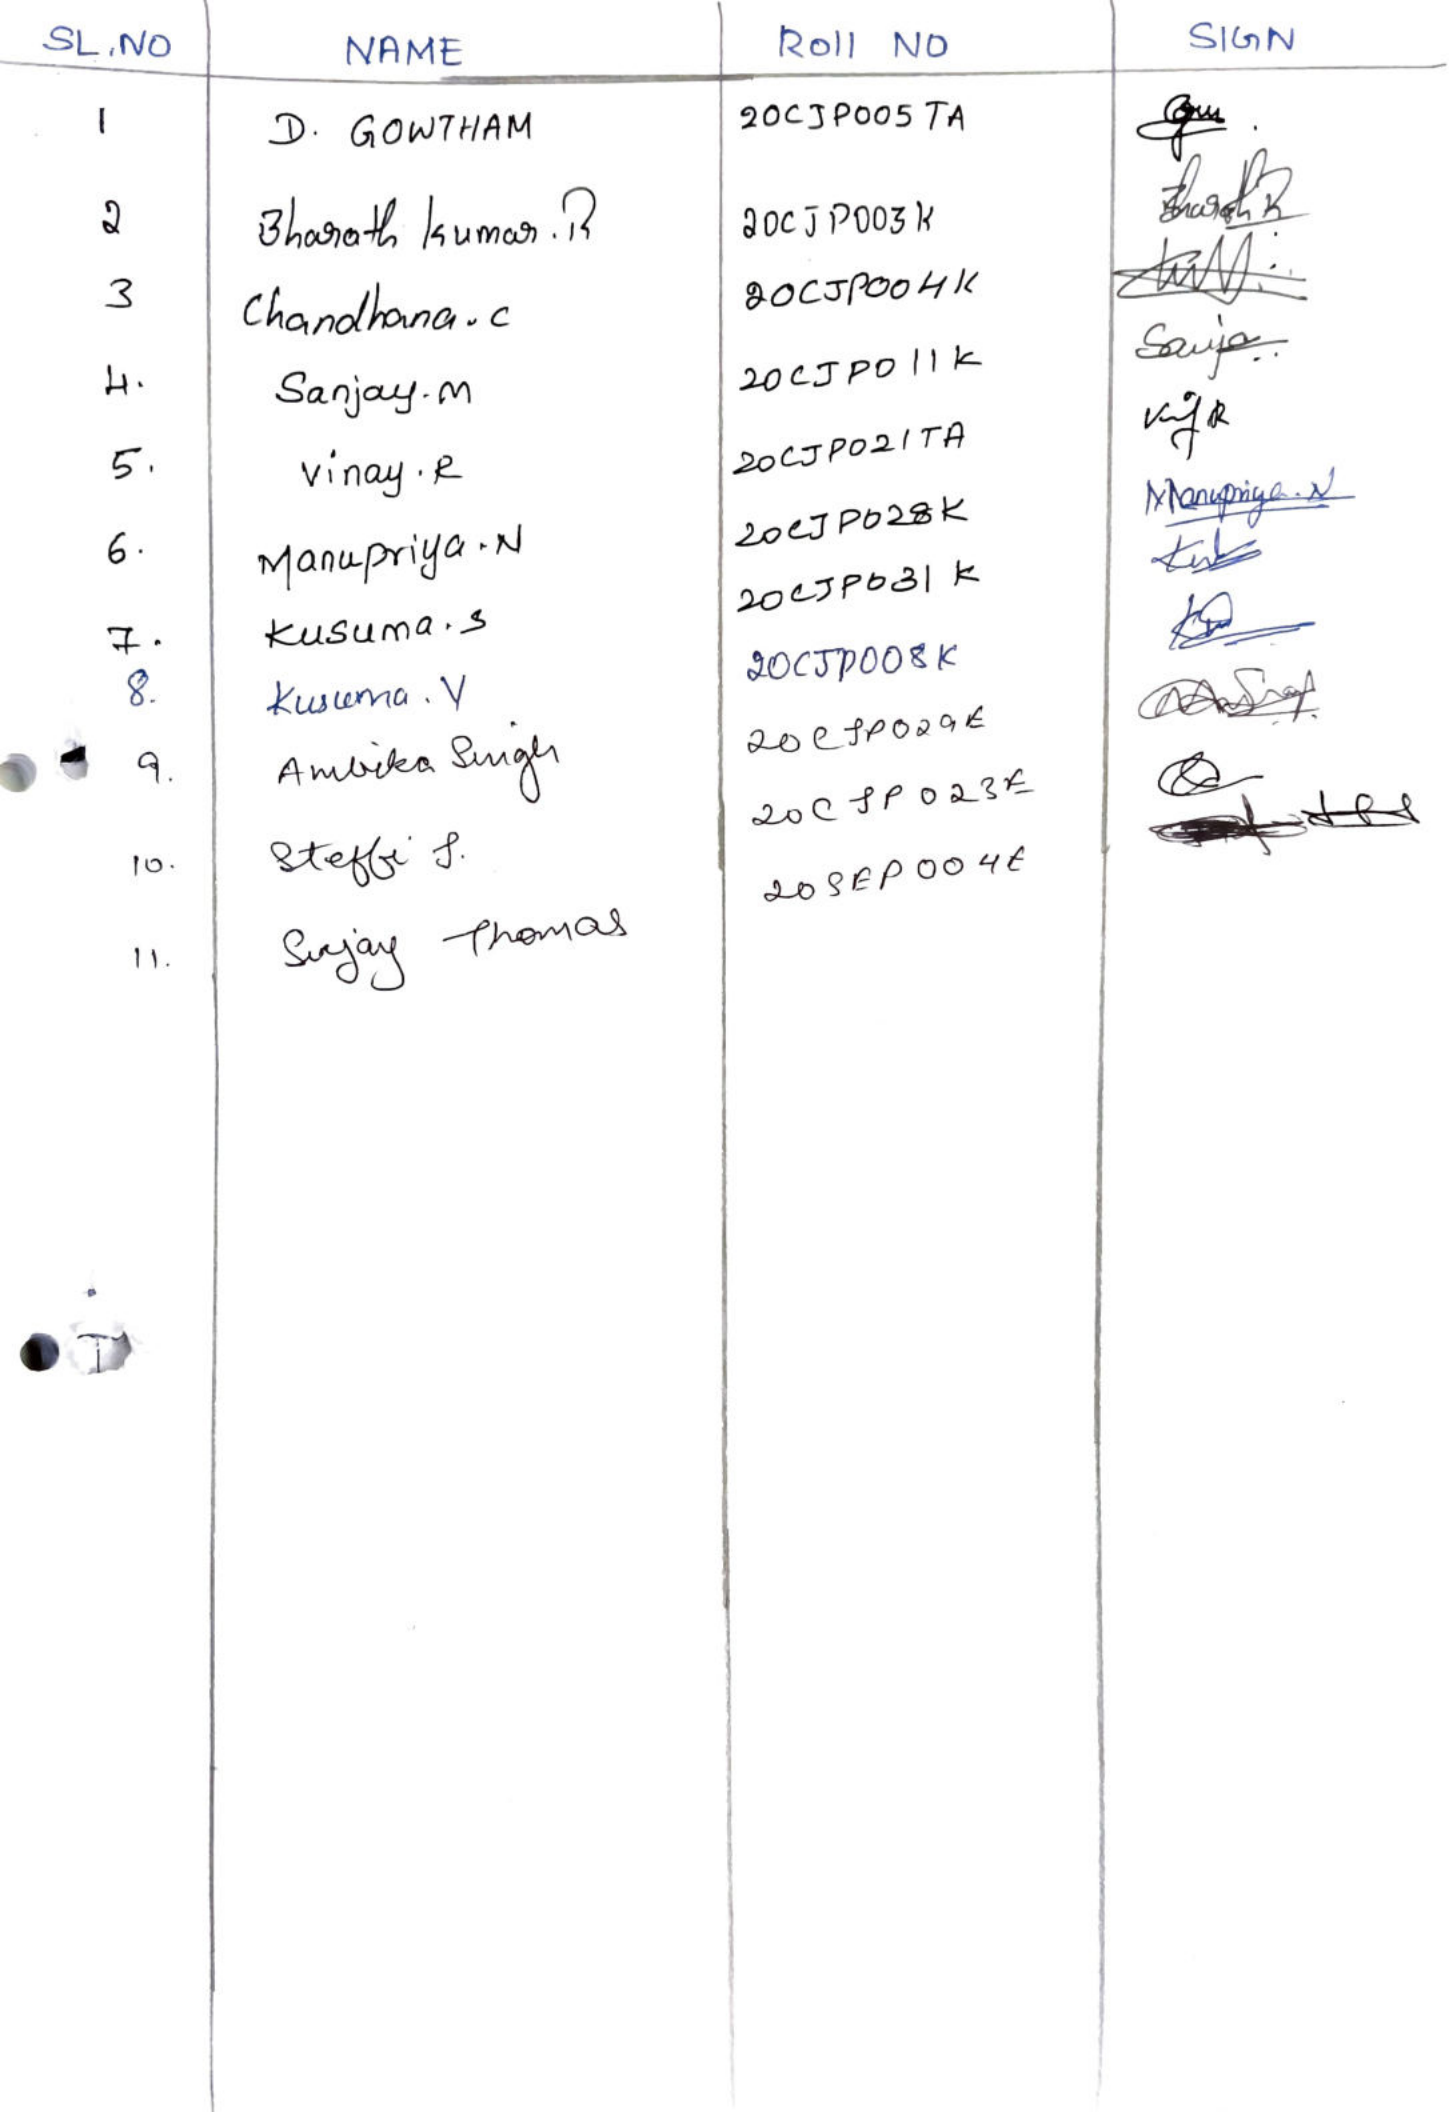 SL.NO NAME Roll NO SIGN
1 D. GOWTHAM 20CJP005TA
2 Bharath kumar.R 20CJP003K Bharath R
3 Chandhana.c 20CJP004K
4. Sanjay.M 20CJP011K Sanja
5. Vinay.R 20CJP021TA
6. Manupriya.N 20CJP028K Manupriya.N
7. Kusuma.S 20CJP031K
8. Kusuma.Y 20CJP008K
9. Ambika Singh 20CJP029E
10. Steffi J. 20CJP023E
11. Sujay Thomas 20SEP004E